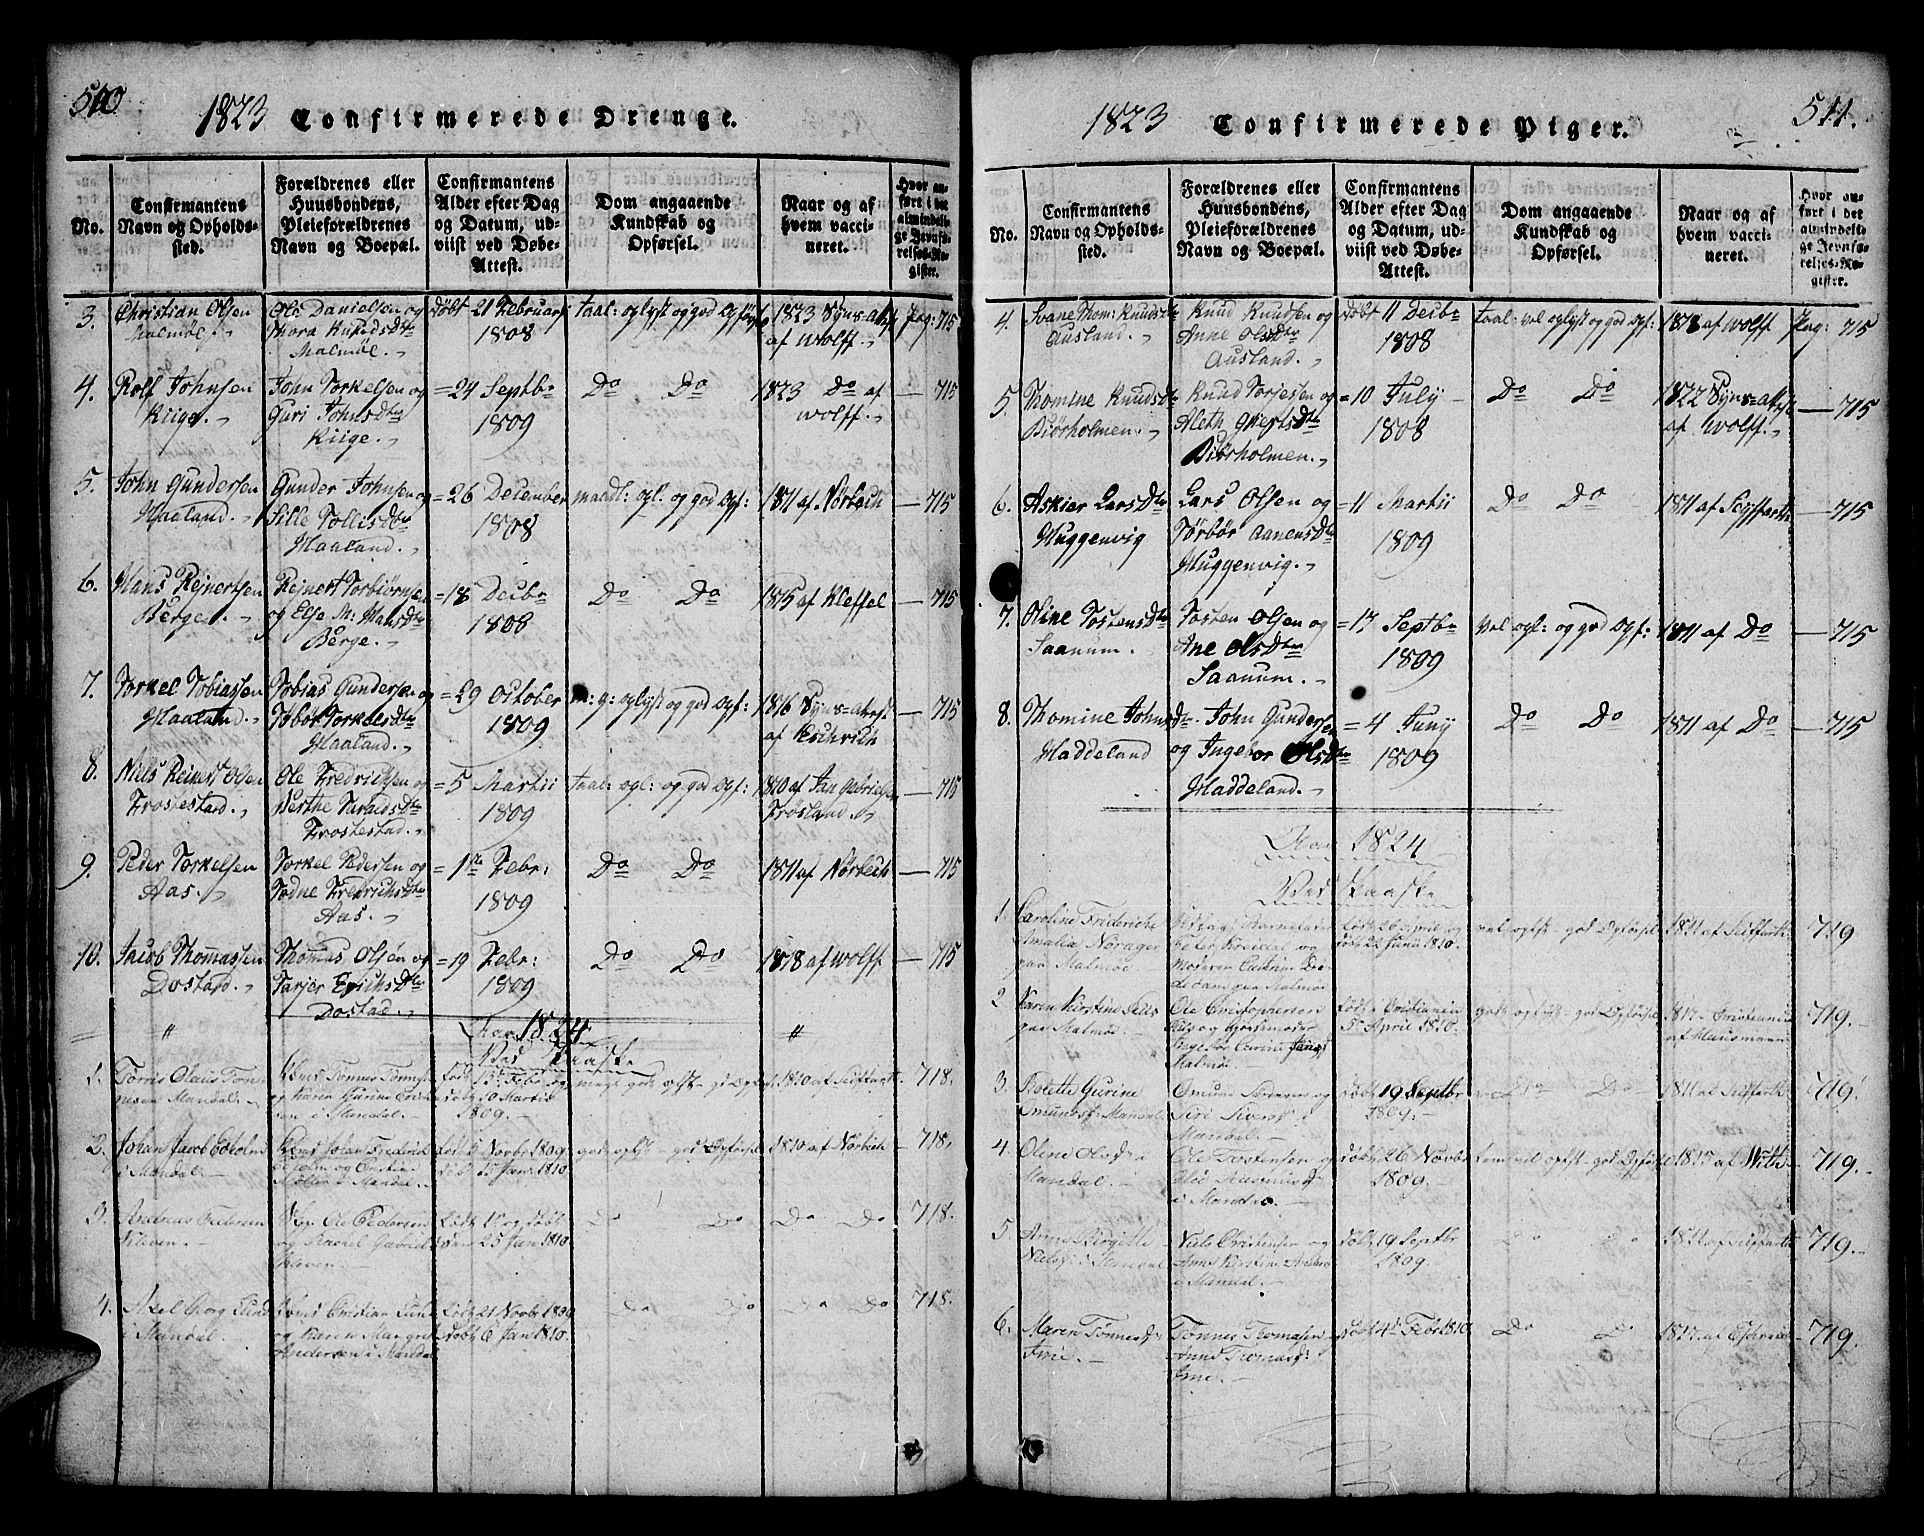 510
1823 Confirmerede Drenge.
No.
Confirmantens
Navn og Opholds-
sted.
Forældrenes eller
Huusbondens,
Pleieforældrenes
Navn og Boepæl.
Confirmantens
Alder efter Dag
og Datum, ud-
viist ved Døbe-
Attest.
Dom angaaende
Kundskab og
Opførsel.
Naar og af
hvem vacci-
neret.
Hvor an-
ført i det
almindeli-
ge Jevnfø-
relses-Re-
gister.
3. Christian Olsen
Malmøe
Ole Danielsen og
Thora Knudsdtr
Malmøe
døbt 21 Februarj
1808
taal: oplyst og god Opførs
1823 Syns-at
af Wolff
Pag: 715
4. Rolf Johnsen
Kiige
John Torkelsen og
Guri Johnsdtr
Kiige
= 24 Septbr
1809
Do Do
1823 Do af
Wolff
715
5. John Gundersen
Haaland
Gunder Johnsen og
Sille Tollisdtr
Haaland
= 26 December
1808
maadl: opl. og god Opf:
1811 af Nørbech
715
6. Hans Rejnertsen
Berge
Rejnert Torbiørnsen
og Else M: Hansdtr
Berge
= 18 Decbr
1808
Do Do
1815 af Kleffel
715
7. Torkel Tobiassen
Haaland
Tobias Gundersen og
Tobør Torkelsdtr
Haaland
= 29 October
1809
m: g: oplyst og god Opf:
1816 Syns-Attest
af Eschrich
715
8. Niels Reinert Olsen
Frostestad
Ole Fredrichsen og
Berthe Taraldsdtr
Frostestad
= 5 Martii
1809
taal: opl: og god Opf:
1810 af Jan Gabrielsen
Frøsland
715
9. Peder Torkelsen
Aas
Torkel Pedersen og
Todne Fredrichsdtr
Aas
= 1ste Febr:
1809
Do Do
1811 af Nørbech
715
10. Jacob Thomassen
Dostad
Thomas Olsen og
Tarjer Erichsdtr
Dostad
= 19 Febr:
1809
Do Do
1818 af Wolff
715
Aar 1824
Ved Paaske
1. Tørris Olaus Tøn-
nesen Mandal
Tønnes Tønnesen
og Karen Gurine Erich-
sen i Mandal
født 13 Febr og
døbt 10 Martii
1809
meget god oplyst
1810 af Seiffarth
718.
2. Johan Jacob Edholm
i Mandal
Johan Fredrich
Edholm og Cristine
Møller i Mandal
født 5 Novbr 1809
døbt 15 Janr 1810
god oplyst - god Opførsel
1810 af Nørbech
718.
3. Andreas Pedersen
Kleven
Ole Pedersen
og Rachel Gabriels
Kleven
født 12 og døbt
25 Janr 1810
Do Do
Do Do
718.
4. Axel Georg Lund
i Mandal
Cristian Lund
og Karen Margret
Andersen i Mandal
født 21 Novbr 1809
døbt 6 Janr 1810
Do Do
Do Do
718.
1823 Confirmerede Piger.
511.
No.
Confirmantens
Navn og Opholds-
sted.
Forældrenes eller
Huusbondens,
Pleieforældrenes
Navn og Boepæl.
Confirmantens
Alder efter Dag
og Datum, ud-
viist ved Døbe-
Attest.
Dom angaaende
Kundskab og
Opførsel.
Naar og af
hvem vacci-
neret.
Hvor an-
ført i det
almindeli-
ge Jevnfø-
relses-Re-
gister.
4. Svane Thom: Knudsdtr
Ausland
Knud Knudsen og
Anne Olsdtr
Ausland
døbt 11 Decbr
1808
taal: vel oplyst og god Opf:
1818 af Wolff
Pag: 715
5 Thomine Knudsdtr
Biørholmen
Knud Torjesen og
Aleth Gjertsdtr
Biørholmen
= 10 July
1808
Do Do
1822 Syns-attest
af Wolff
715
6. Askier Larsdtr
Huggenvig
Lars Olsen og
Tørbør Aanensdtr
Huggenvig
= 11 Martii
1809
Do Do
1811 af Seyffarth
715
7. Oline Tostensdtr
Saanum
Tosten Olsen og
Ane Olsdtr
Saanum
= 17 Septbr
1809
vel opl: og god Opf:
1811 af Do
715
8. Thomine Johnsdtr
Haddeland
John Gundersen
og Ingebor Olsdtr
Haddeland
= 4 Juny
1809
Do Do
1811 af Do
715
Aar 1824
Ved Paaske
1. Caroline Frideriche
Amalia Norager
paa Malmøe
Peter Kreidal og
Moderen Cathrine
paa Malmøe
født 26 April og
døbt 22 Junii 1810.
vel oplyst - god Opførsel
1811 af Seiffarth
719
2. Karen Kirstine
paa Malmøe
Ole Cristophersen
Malmøe
født i Cristiania
5 April 1810.
god oplyst - god Opførsel
1817 i Cristiania
af Mausmann
719.
3. Gurine
Omunds: Mandal
Omund Sørensen og
Siri Sivers:
Mandal
døbt 19 Septbr
1809.
Do Do
1811 af Seiffarth
719.
4. Oline Olsd: i
Mandal
Ole Tostensen og
Rasmusd:
i Mandal
døbt 26 Novbr
1809.
vel oplyst - god Opførsel
1815 af With
719.
5. Anne Birgitte
Nielsd: i Mandal
Niels Cristensen og
Anne Kirstine
Mandal
døbt 19 Septbr
1809.
Do Do
1811 af Seiffarth
719.
6. Maren Tønnesd:
Ime
Tønnes Thomasen
Anne Thomasd:
Ime
døbt 4 Febr 1810
Do Do
1817 af Eschrich
719.